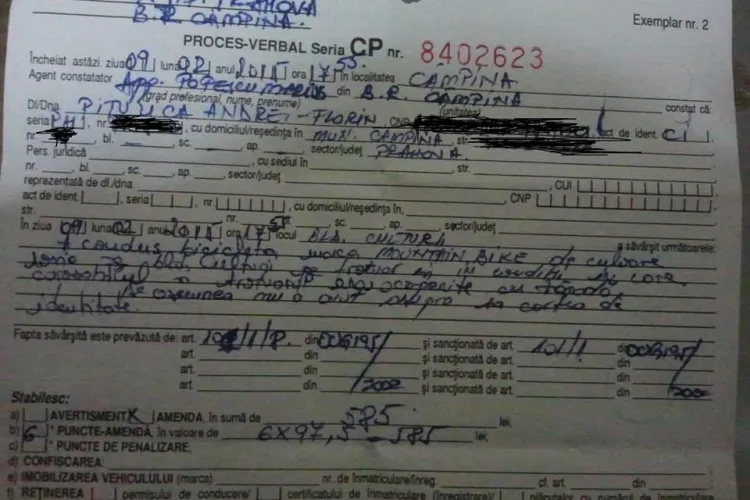 B.R. CAMPINA.
Exemplar nr. 2
PROCES-VERBAL Seria CP nr. 8402623
Încheiat astăzi, ziua 09 luna 02 anul 2015 ora 17 55 în localitatea CAMPINA
Agent constatator Agp. POPESCU MARIUS din B.R. CAMPINA
(grad profesional, nume, prenume) (unitatea) constat că:
Dl/Dna PITULICA ANDREI-FLORIN CNP act de ident. CI
seria PH, nr. , cu domiciliul/reşedinţa în MUN. CAMPINA, str.
nr. , bl. , sc. , ap. , sector/judeţ PRAHOVA.
Pers. juridică , cu sediul în , str.
nr. , bl. , sc. , ap. , sector/judeţ , CUI
reprezentată de dl./dna. , CNP
act de ident , seria , nr. , cu domiciliul/reşedinţa în,
str. nr. sc. ap. sector/judeţ
În ziua 09 luna 02 anul 2015 ora 17 50 locul BLD. CULTURII a săvârşit următoarele:
A condus bicicleta marca MOUNTAIN BIKE de culoare
pe Bld. Culturii pe trotuar în condiţii în care
carosabilul acoperite cu zăpadă
De asemenea nu a avut asupra sa cartea de
identitate.
Fapta săvârşită este prevăzută de: art. 101/1/8. din OUG 195/ şi sancţionată de art. 101/1 din OUG 195/
art. din şi sancţionată de art. din
art. din şi sancţionată de art. din
art. din /2002 şi sancţionată de art. din /2002
Stabilesc:
a) AVERTISMENT X AMENDA, în sumă de 585 lei;
b) 6 * PUNCTE-AMENDA, în valoare de 6X97,5=585 lei,
c) * PUNCTE DE PENALIZARE;
d) CONFISCAREA:
e) IMOBILIZAREA VEHICULULUI (marca) nr. de înmatriculare/înreg. cf. art. din
f) REŢINEREA permisului de conducere/ certificatului de înmatriculare (înregistrare)/ plăcuţelor cu numărul de înmatriculare